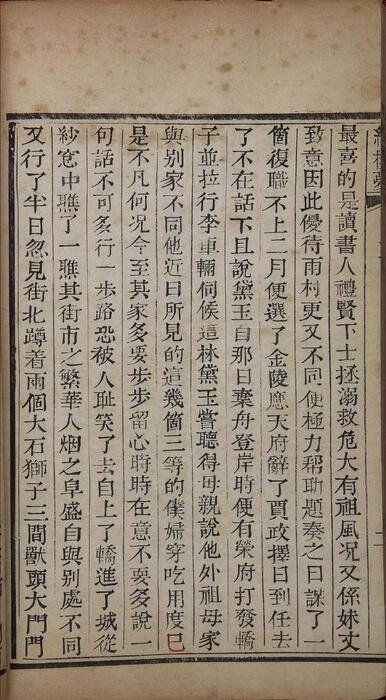 紅樓夢
最喜的是讀書人禮賢下士拯溺救危大有祖風况又係妹丈
致意因此優待雨村更又不同便極力帮助題奏之日謀了一
箇復職不上二月便選了金陵應天府辭了賈政擇日到任去
了不在話下且說黛玉自那日棄舟登岸時便有榮府打發轎
子並拉行李車輛伺候這林黛玉嘗聽得母親說他外祖母家
與别家不同他近日所見的這幾箇三等的僕婦穿吃用度已
是不凡何况今至其家多要步步留心時時在意不要多說一
句話不可多行一步路恐被人耻笑了去自上了轎進了城從
紗窓中瞧了一瞧其街市之繁華人烟之阜盛自與别處不同
又行了半日忽見街北蹲着兩個大石獅子三間獸頭大門門